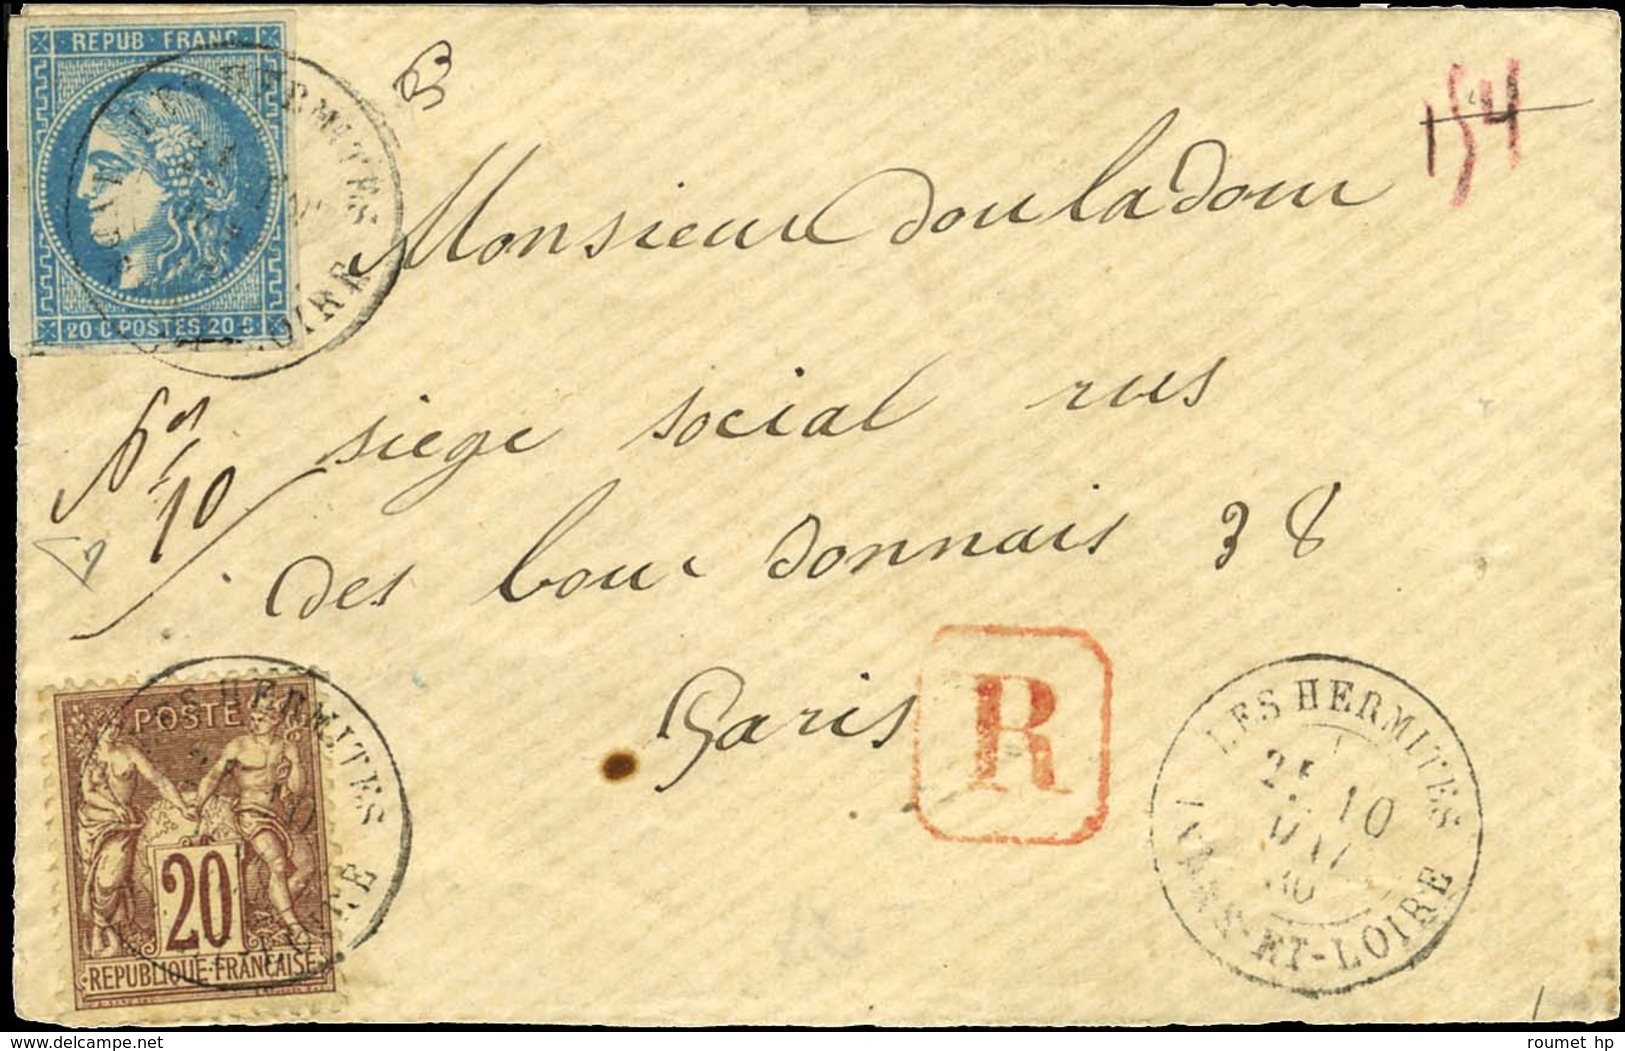 REPUB FRANC
20 C POSTES 20 C
LES HERMITES
LOIRE
154
Monsieur Douladour
siege social rus
des bour donnais 38
Paris
No
10
R
POSTE
20
REPUBLIQUE FRANÇAISE
HERMITES
LES HERMITES
25 10
MAI
80
INDRE-ET-LOIRE
roumet hp